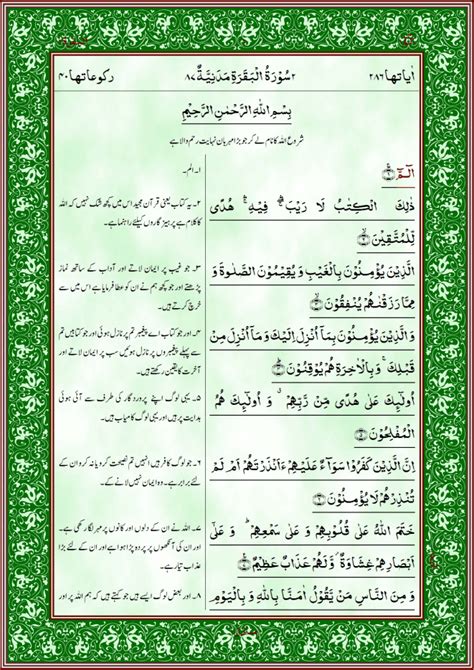 اٰیاتھا ۲۸۶ ۲ سُوْرَةُ الْبَقَرَةِ مَدَنِیَّةٌ ۸۷ رکوعاتھا ۴۰
بِسْمِ اللّٰهِ الرَّحْمٰنِ الرَّحِیْمِ
شروع اللہ کا نام لے کر جو بڑا مہربان نہایت رحم والا ہے
الٓمّٓ ۝۱
ذٰلِكَ الْكِتٰبُ لَا رَیْبَ ۛۚ فِیْهِ ۛۚ هُدًی
لِّلْمُتَّقِیْنَ ۝۲
الَّذِیْنَ یُؤْمِنُوْنَ بِالْغَیْبِ وَ یُقِیْمُوْنَ الصَّلٰوةَ وَ
مِمَّا رَزَقْنٰهُمْ یُنْفِقُوْنَ ۝۳
وَالَّذِیْنَ یُؤْمِنُوْنَ بِمَاۤ اُنْزِلَ اِلَیْكَ وَ مَاۤ اُنْزِلَ مِنْ
قَبْلِكَ ۚ وَ بِالْاٰخِرَةِ هُمْ یُوْقِنُوْنَ ۝۴
اُولٰٓئِكَ عَلٰی هُدًی مِّنْ رَّبِّهِمْ ۗ وَ اُولٰٓئِكَ هُمُ
الْمُفْلِحُوْنَ ۝۵
اِنَّ الَّذِیْنَ كَفَرُوْا سَوَآءٌ عَلَیْهِمْ ءَاَنْذَرْتَهُمْ اَمْ لَمْ
تُنْذِرْهُمْ لَا یُؤْمِنُوْنَ ۝۶
خَتَمَ اللّٰهُ عَلٰی قُلُوْبِهِمْ وَ عَلٰی سَمْعِهِمْ ؕ وَ عَلٰۤی
اَبْصَارِهِمْ غِشَاوَةٌ ؗ وَّ لَهُمْ عَذَابٌ عَظِیْمٌ ۝۷
وَ مِنَ النَّاسِ مَنْ یَّقُوْلُ اٰمَنَّا بِاللّٰهِ وَ بِالْیَوْمِ
۱۔ الم۔
۲۔ یہ کتاب یعنی قرآن مجید اس میں کچھ شک نہیں کہ اللہ
کا کلام ہے پرہیزگاروں کیلئے راہنما ہے۔
۳۔ جو غیب پر ایمان لاتے اور آداب کے ساتھ نماز
پڑھتے اور جو کچھ ہم نے ان کو عطا فرمایا ہے اس میں سے
خرچ کرتے ہیں۔
۴۔ اور جو کتاب اے پیغمبر تم پر نازل ہوئی اور جو کتابیں تم
سے پہلے پیغمبروں پر نازل ہوئیں سب پر ایمان لاتے اور
آخرت کا یقین رکھتے ہیں۔
۵۔ یہی لوگ اپنے پروردگار کی طرف سے آئی ہوئی
ہدایت پر ہیں اور یہی لوگ کامیاب ہیں۔
۶۔ جو لوگ کافر ہیں انہیں تم نصیحت کرو یا نہ کرو ان کے
لئے برابر ہے۔ وہ ایمان نہیں لانے کے۔
۷۔ اللہ نے ان کے دلوں اور کانوں پر مہر لگا رکھی ہے۔
اور ان کی آنکھوں پر پردہ پڑا ہوا ہے اور ان کے لئے بڑا
عذاب تیار ہے۔
۸۔ اور بعض لوگ ایسے ہیں جو کہتے ہیں کہ ہم اللہ پر اور